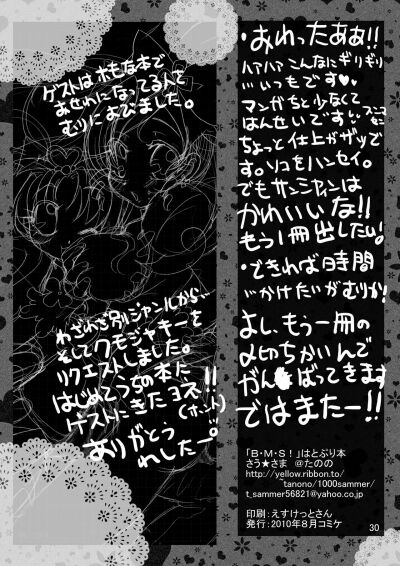 ・おわったああ!!
ハアハア こんなにギリギリ
いつもです♥♥
マンガちと少なくて
はんせいです
ちょっと仕上がザツで
す。ソコをハンセイ。
でもサンシャインは
かわいいな!!
もう1冊出したい!
・できれば時間
かけたいがむりか!
よし、もう一冊の
〆切ちかいんで
がんばってきます
ではまたー!!
ゲストはホモな本で
おせわになってる人を
むりによびました。
わざわざ別ジャンルから
そしてクモジャキーを
リクエストしました。
はじめてうちの本に
ゲストにきたヨネ!!
(ホント)
ありがとう
れしたー。
「B・M・S!」はとぷり本
さう★さま @たのの
http://yellow.ribbon.to/
tanono/1000sammer/
t_sammer56821@yahoo.co.jp
印刷:えすけっとさん
発行:2010年8月コミケ
30